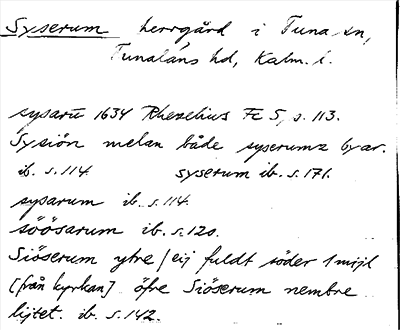 Syserum herrgård i Tuna sn,
Tunaläns hd, Kalm. l.
sysarū 1634 Rhezelius Fc 5, s. 113.
Sysiön melan både syserumz byar.
ib. s. 114. syserum ib. s. 171.
sysarum ib. s. 114.
söösarum ib. s. 120.
Siöserum ytre / eij fuldt söder 1 mijl
[från kyrkan] öfre Siöserum nembre
lijtet. ib. s. 142.